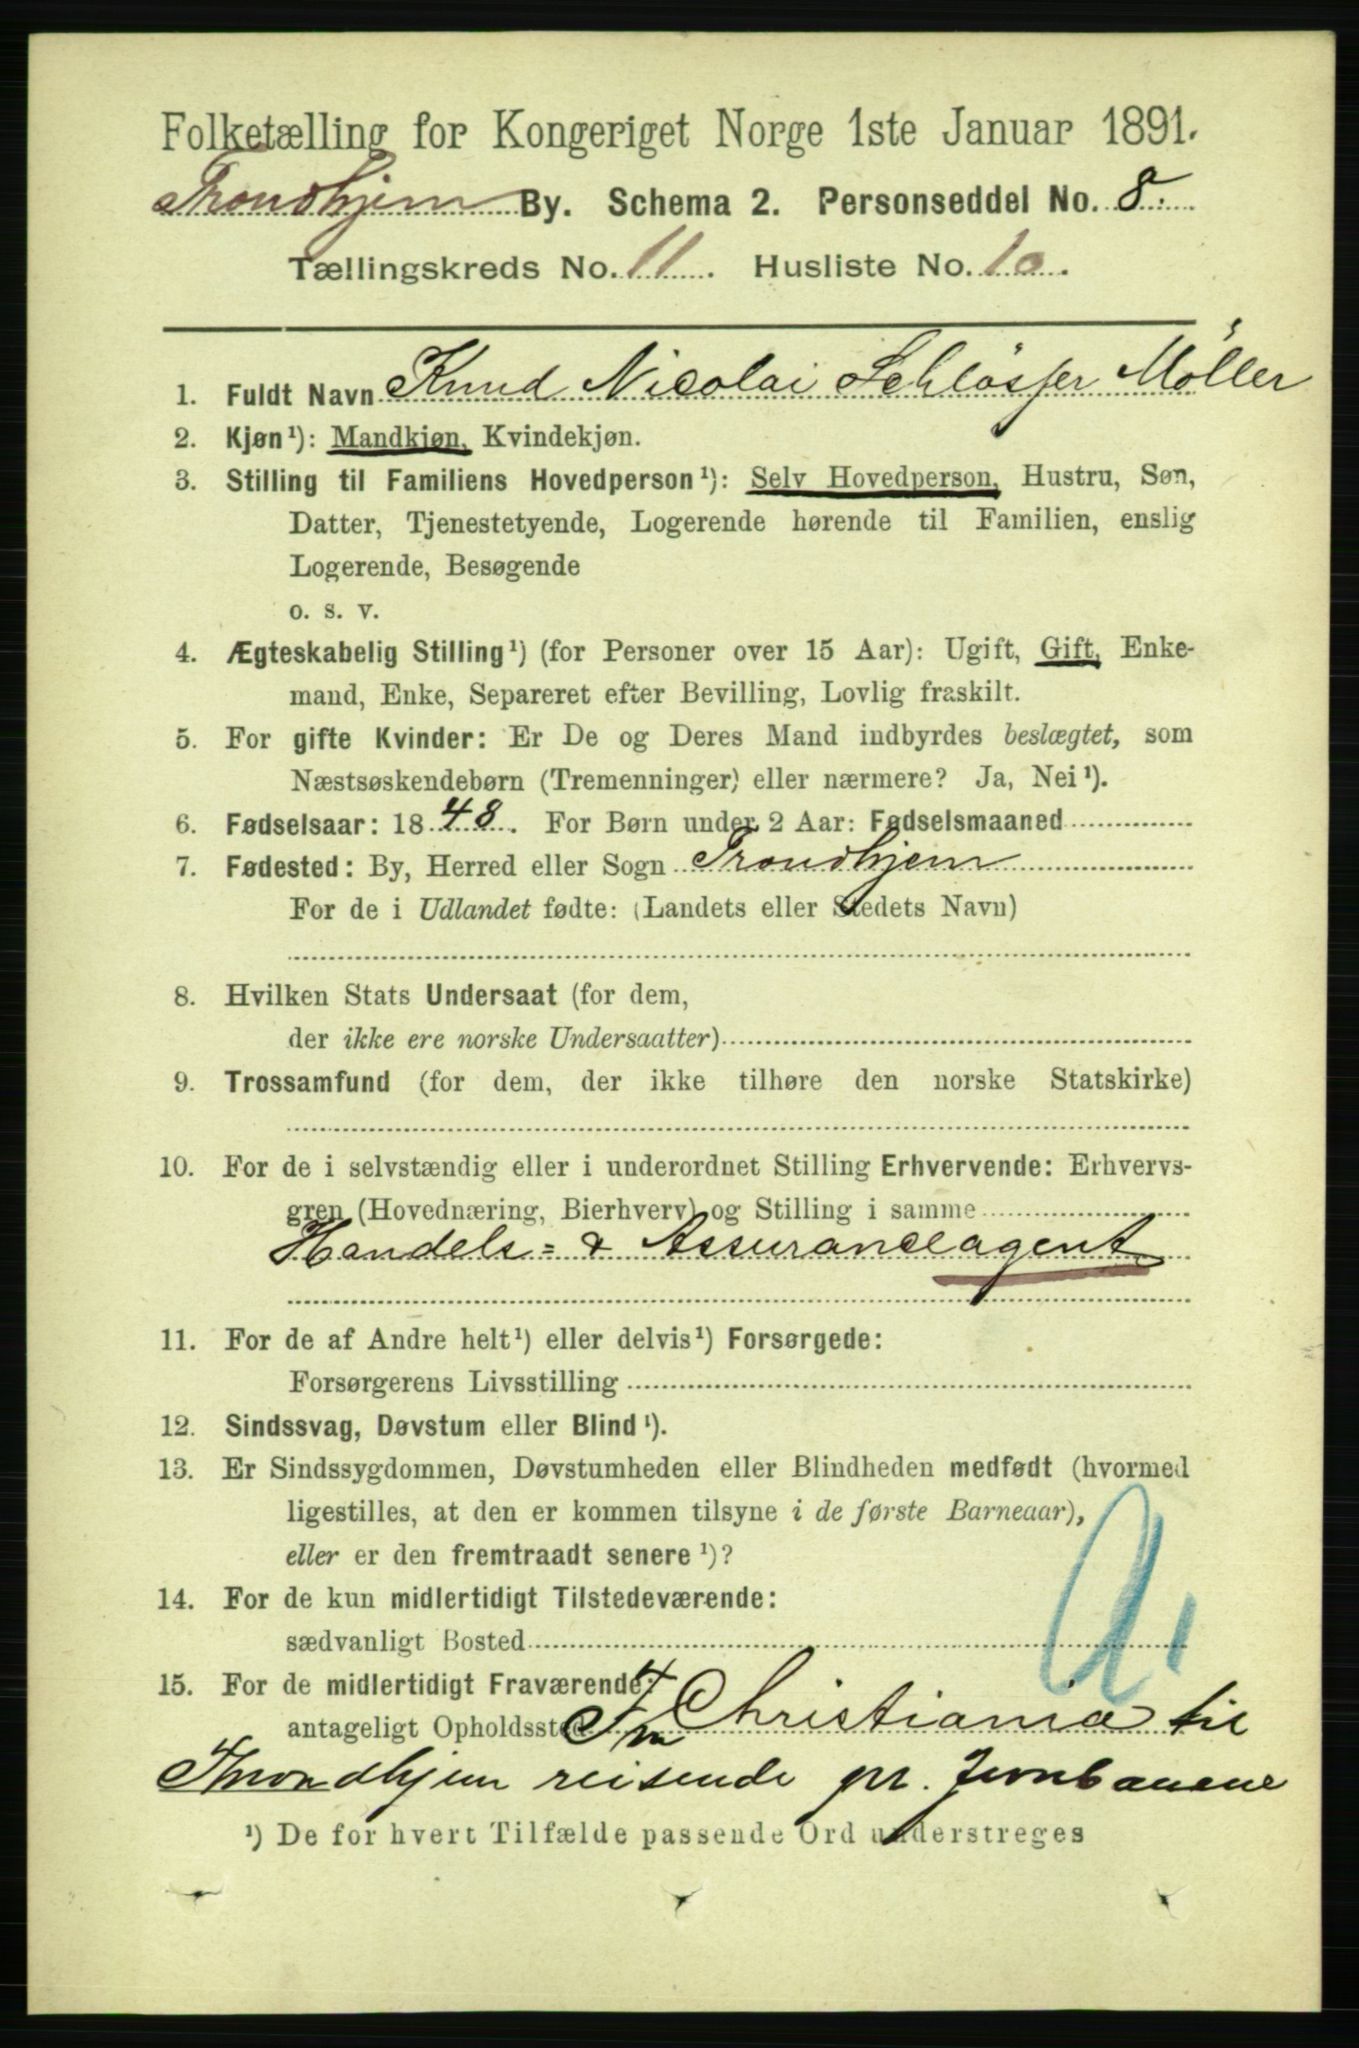 Folketælling for Kongeriget Norge 1ste Januar 1891.
Trondhjem By. Schema 2. Personseddel No. 8.
Tællingskreds No. 11. Husliste No. 10.
1. Fuldt Navn Knud Nicolai Schlösser Möller
2. Kjøn¹): Mandkjøn, Kvindekjøn.
3. Stilling til Familiens Hovedperson¹): Selv Hovedperson, Hustru, Søn,
Datter, Tjenestetyende, Logerende hørende til Familien, enslig
Logerende, Besøgende
o. s. v.
4. Ægteskabelig Stilling¹) (for Personer over 15 Aar): Ugift, Gift, Enke-
mand, Enke, Separeret efter Bevilling, Lovlig fraskilt.
5. For gifte Kvinder: Er De og Deres Mand indbyrdes beslægtet, som
Næstsøskendebørn (Tremenninger) eller nærmere? Ja, Nei¹).
6. Fødselsaar: 1848. For Børn under 2 Aar: Fødselsmaaned
7. Fødested: By, Herred eller Sogn Trondhjem
For de i Udlandet fødte: (Landets eller Stedets Navn)
8. Hvilken Stats Undersaat (for dem,
der ikke ere norske Undersaatter)
9. Trossamfund (for dem, der ikke tilhøre den norske Statskirke)
10. For de i selvstændig eller i underordnet Stilling Erhvervende: Erhvervs-
gren (Hovednæring, Bierhverv) og Stilling i samme
Handels= & Assuranceagent
11. For de af Andre helt¹) eller delvis¹) Forsørgede:
Forsørgerens Livsstilling
12. Sindssvag, Døvstum eller Blind¹).
13. Er Sindssygdommen, Døvstumheden eller Blindheden medfødt (hvormed
ligestilles, at den er kommen tilsyne i de første Barneaar),
eller er den fremtraadt senere¹)?
14. For de kun midlertidigt Tilstedeværende:
sædvanligt Bosted
15. For de midlertidigt Fraværende:
antageligt Opholdssted Fra Christiania til
Throndhjem reisende pr. Jernbanene
¹) De for hvert Tilfælde passende Ord understreges